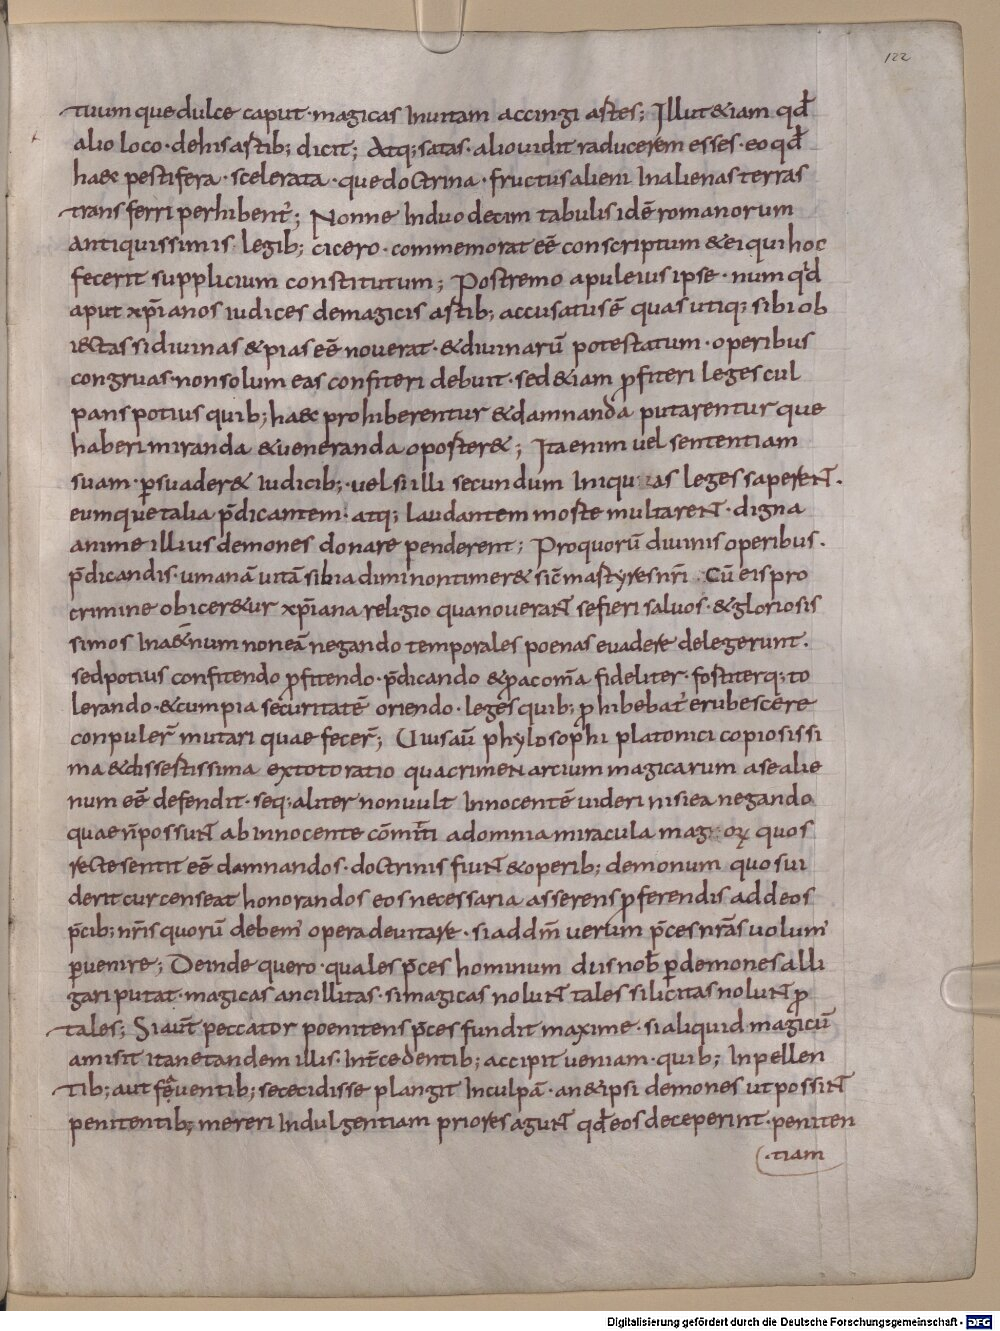 122
tuum que dulce caput · magicas Inuitam accingi astes; Illut &iam qđ
alio loco · dehis astib; dicit; Atq; satas · alio uidit raducerem esses · eo qđ
ha& pestifera · scelerata · que doctrina · fructus alieni In alienas terras
trans ferri perhibent᷑; Nonne Induodecim tabulis idē romanorum
antiquissimis · legib; cicero · commemorat eē conscriptum & ei qui hoc
fecerit supplicium constitutum; Postremo apuleius ipse · num qđ
aput xp̄ianos iudices demagicis astib; accusatus ē quas utiq; sibi ob
iectas si diuinas & pias eē nouerat · & diuinarū potestatum · operibus
congruas · non solum eas confiteri debuit · sed &iam ꝓfiteri leges cul
pans potius quib; ha& prohiberentur & damnanda putarentur que
haberi miranda & ueneranda oporter&; Ita enim uel sententiam
suam · ꝑsuader& Iudicib; · uel si illi secundum Iniquas leges saperent ·
eum que talia p̄dicantem · atq; laudantem moste multarent · digna
anime illius demones donare penderent; Pro quorū diuinis operibus ·
p̄dicandis · umanā uitā sibi adimi non timer& sic̄ mastyres nr̄i · Cū eis pro
crimine obicer&ur xp̄iana religio qua nouerant se fieri saluos · & gloriosis
simos In a&̄num non eā negando temporales poenas euadere delegerunt ·
sed potius confitendo ꝓfitendo · p̄dicando & ꝓ ac om̄a fideliter · fostiterq; to
lerando · & cum pia securitatē oriendo · leges quib; ꝓhibebat᷑ erubescere
conpuler̄ mutari quae fecer̄; Uius aū phylosophi platonici copiosissi
ma & dissestissima extot oratio qua crimen arcium magicarum a se alie
num eē defendit · seq; aliter non uult Innocentē uideri nisi ea negando
quae n̄ possunt ab innocente cōmitti ad omnia miracula mag orꝝ quos
recte sentit eē damnandos · doctrinis fiunt & operib; demonum quos ui
derit cur censeat honorandos eos necessaria asserens ꝓferendis ad deos
p̄cib; nr̄is quorū debem᷑ opera deuitare · si ad dm̄ uerum p̄ces nr̄as uolum᷑
ꝑuenire; Deinde quero · quales p̄ces hominum diis nob̄ ꝑ demones alli
gari putat · magicas an cillitas · si magicas nolunt tales si licitas nolunt ꝑ
tales; Si aut̄ peccator poenitens p̄ces fundit maxime · si aliquid magicū
amisit itane tandem illis · Int̄cedentib; accipit ueniam · quib; Inpellen
tib; aut feuentib; se cecidisse plangit In culpā · an & ipsi demones ut possint
penitentib; mereri Indulgentiam priores agunt qđ eos deceperint · peniten
· tiam
Digitalisierung gefördert durch die Deutsche Forschungsgemeinschaft - DFG